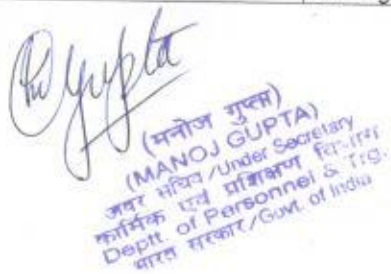 Gupta
(मनोज गुप्ता)
(MANOJ GUPTA)
अवर सचिव/Under Secretary
कार्मिक एवं प्रशिक्षण
Deptt. of Personnel & Trg.
भारत सरकार/Govt. of India